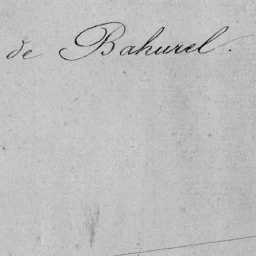 de Bahurel.